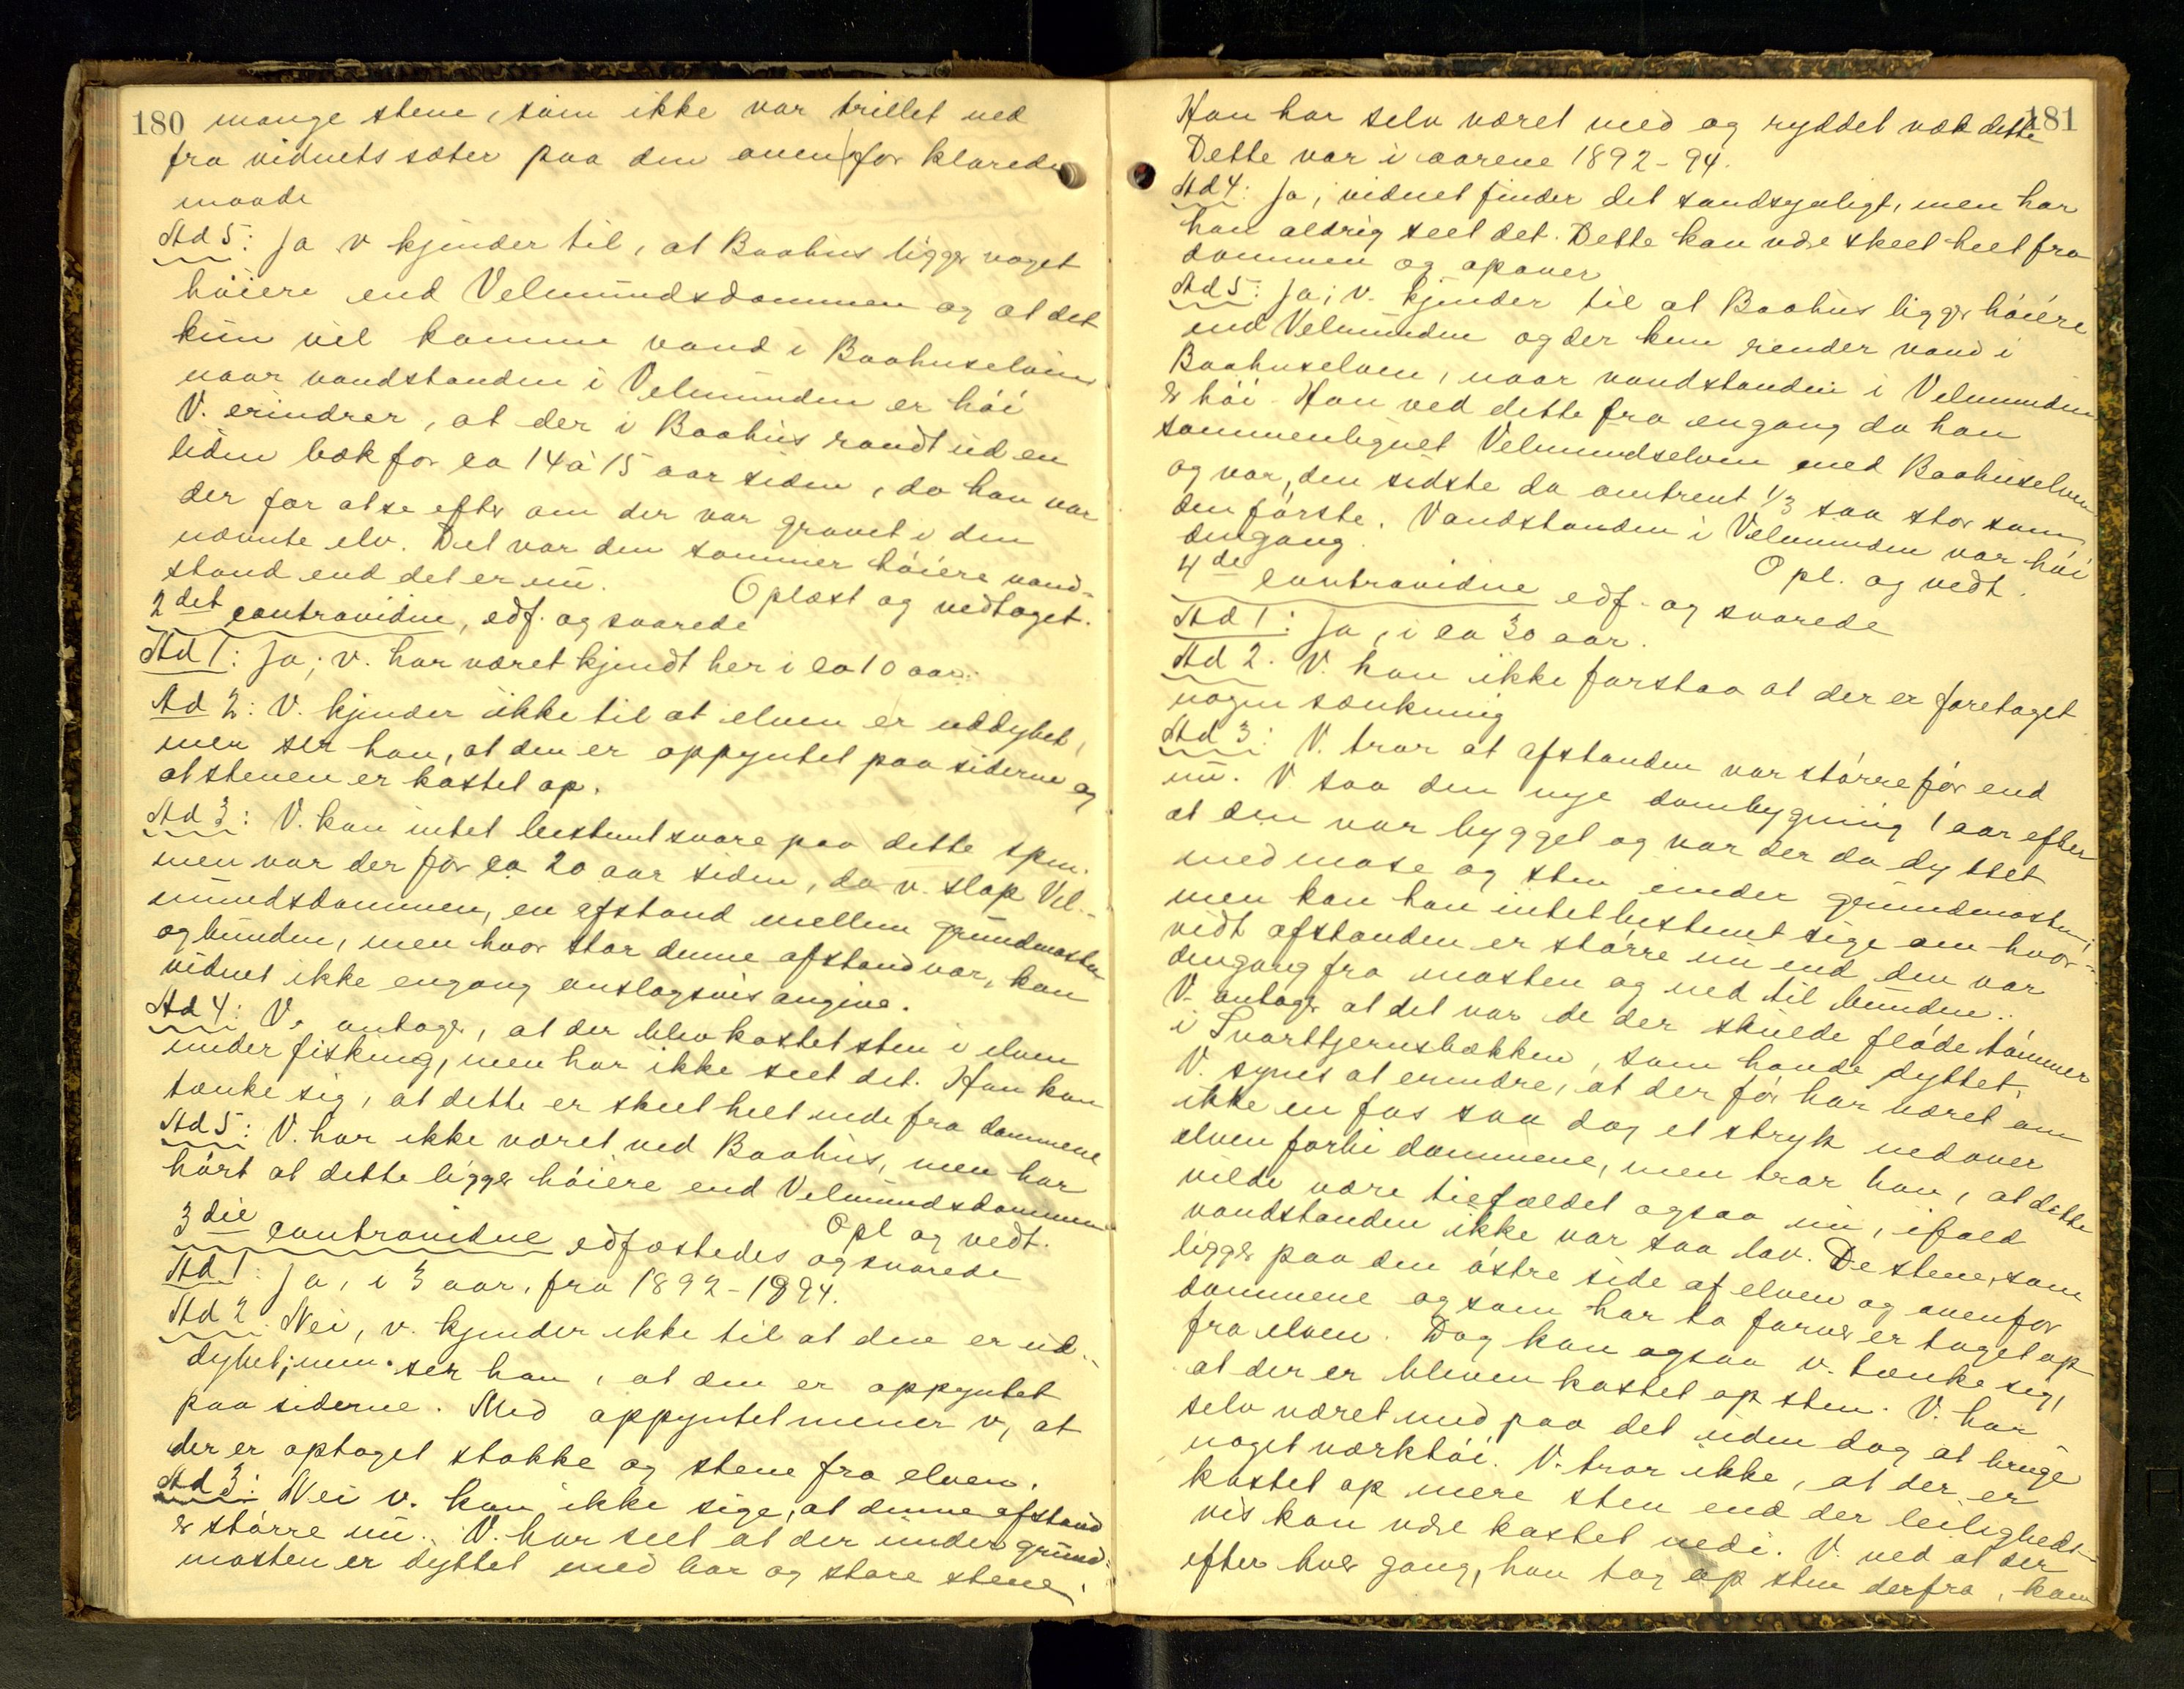 180 mange stene, som ikke var trillet ned
fra vidnets sæter paa den ovenfor klarede
maade
Ad 5: Ja v kjender til, at Baahus ligger noget
høiere end Velmundsdammen og at det
kun vil komme vand i Baahuselven
naar vandstanden i Velmunden er høi
V. erindrer, at der i Baahus randt ud en
liden bæk for ca 14 à 15 aar siden, da han var
der for at se efter om der var gravet i den
nævnte elv. Det var den sommer høiere vand-
stand end det er nu. Oplæst og vedtaget.
2det contravidne, edf. og svarede
Ad 1: Ja; v. har været kjendt her i ca 10 aar.
Ad 2: V. kjender ikke til at elven er uddybet,
men ser han, at den er oppyntet paa siderne og
at stenen er kastet op.
Ad 3: V. kan intet bestemt svare paa dette spm.
men var der for ca 20 aar siden, da v. slap Vel-
mundsdammen, en afstand mellem grundmasten
og bunden, men hvor stor denne afstand var, kan
vidnet ikke engang anslagsvis angive.
Ad 4: V. antager, at der blev kastet sten i elven
under fisking, men har ikke seet det. Han kan
tænke sig, at dette er skeet helt nede fra dammene
Ad 5: V. har ikke været ved Baahus, men har
hørt at dette ligger høiere end Velmundsdammen
Opl og vedt.
3die contravidne edfæstedes og svarede
Ad 1: Ja, i 3 aar, fra 1892-1894.
Ad 2. Nei, v. kjender ikke til at den er ud-
dybet; men ser han, at den er oppyntet
paa siderne. Med oppyntet mener v, at
der er optaget stokke og stene fra elven.
Ad 3: Nei v. kan ikke sige, at denne afstand
er større nu. V. har seet at der under grund-
masten er dyttet med bar og store stene.
Han har selv været med og ryddet væk dette 181
Dette var i aarene 1892-94.
Ad 4: Ja; vidnet finder det sandsynligt, men har
han aldrig seet det. Dette kan være skeet heelt fra
dammen og opover
Ad 5: Ja; v. kjender til at Baahus ligger høiere
end Velmunden og der kun render vand i
Baahuselven, naar vandstanden i Velmunden
er høi. Han ved dette fra engang da han
sammenlignet Velmundselven med Baahuselven
og var, den sidste da omtrent 1/3 saa stor som
den første. Vandstanden i Velmunden var høi
dengang. Opl. og vedt.
4de contravidne edf. og svarede
Ad 1: Ja, i ca 30 aar.
Ad 2. V. kan ikke forstaa at der er foretaget
nogen sænkning
Ad 3: V. tror at afstanden var større før end
nu. V. saa den nye dambygning 1 aar efter
at den var bygget og var der da dyttet
med mose og sten under grundmasten;
men kan han intet bestemt sige om hvor-
vidt afstanden er større nu end den var
dengang fra masten og ned til bunden.
V. antager at det var de der skulde fløde tømmer
i Svarttjernsbækken, som havde dyttet.
V. synes at erindre, at der før har været om
ikke en fos saa dog et stryk nedover
elven forbi dammene, men tror han, at dette
vilde være tilfældet ogsaa nu, ifald
vandstanden ikke var saa lav. De stene, som
ligger paa den østre side af elven og ovenfor
dammene og som har ta farver er taget op
fra elven. Dog kan ogsaa v. tænke sig,
at der er bleven kastet op sten. V. har
selv været med paa det uden dog at bruge
noget værktøi. V. tror ikke, at der er
kastet op mere sten end der leilighedt-
vis kan være kastet nedi. V. ved at der
efter hver gang, han tog op sten derfra, kom